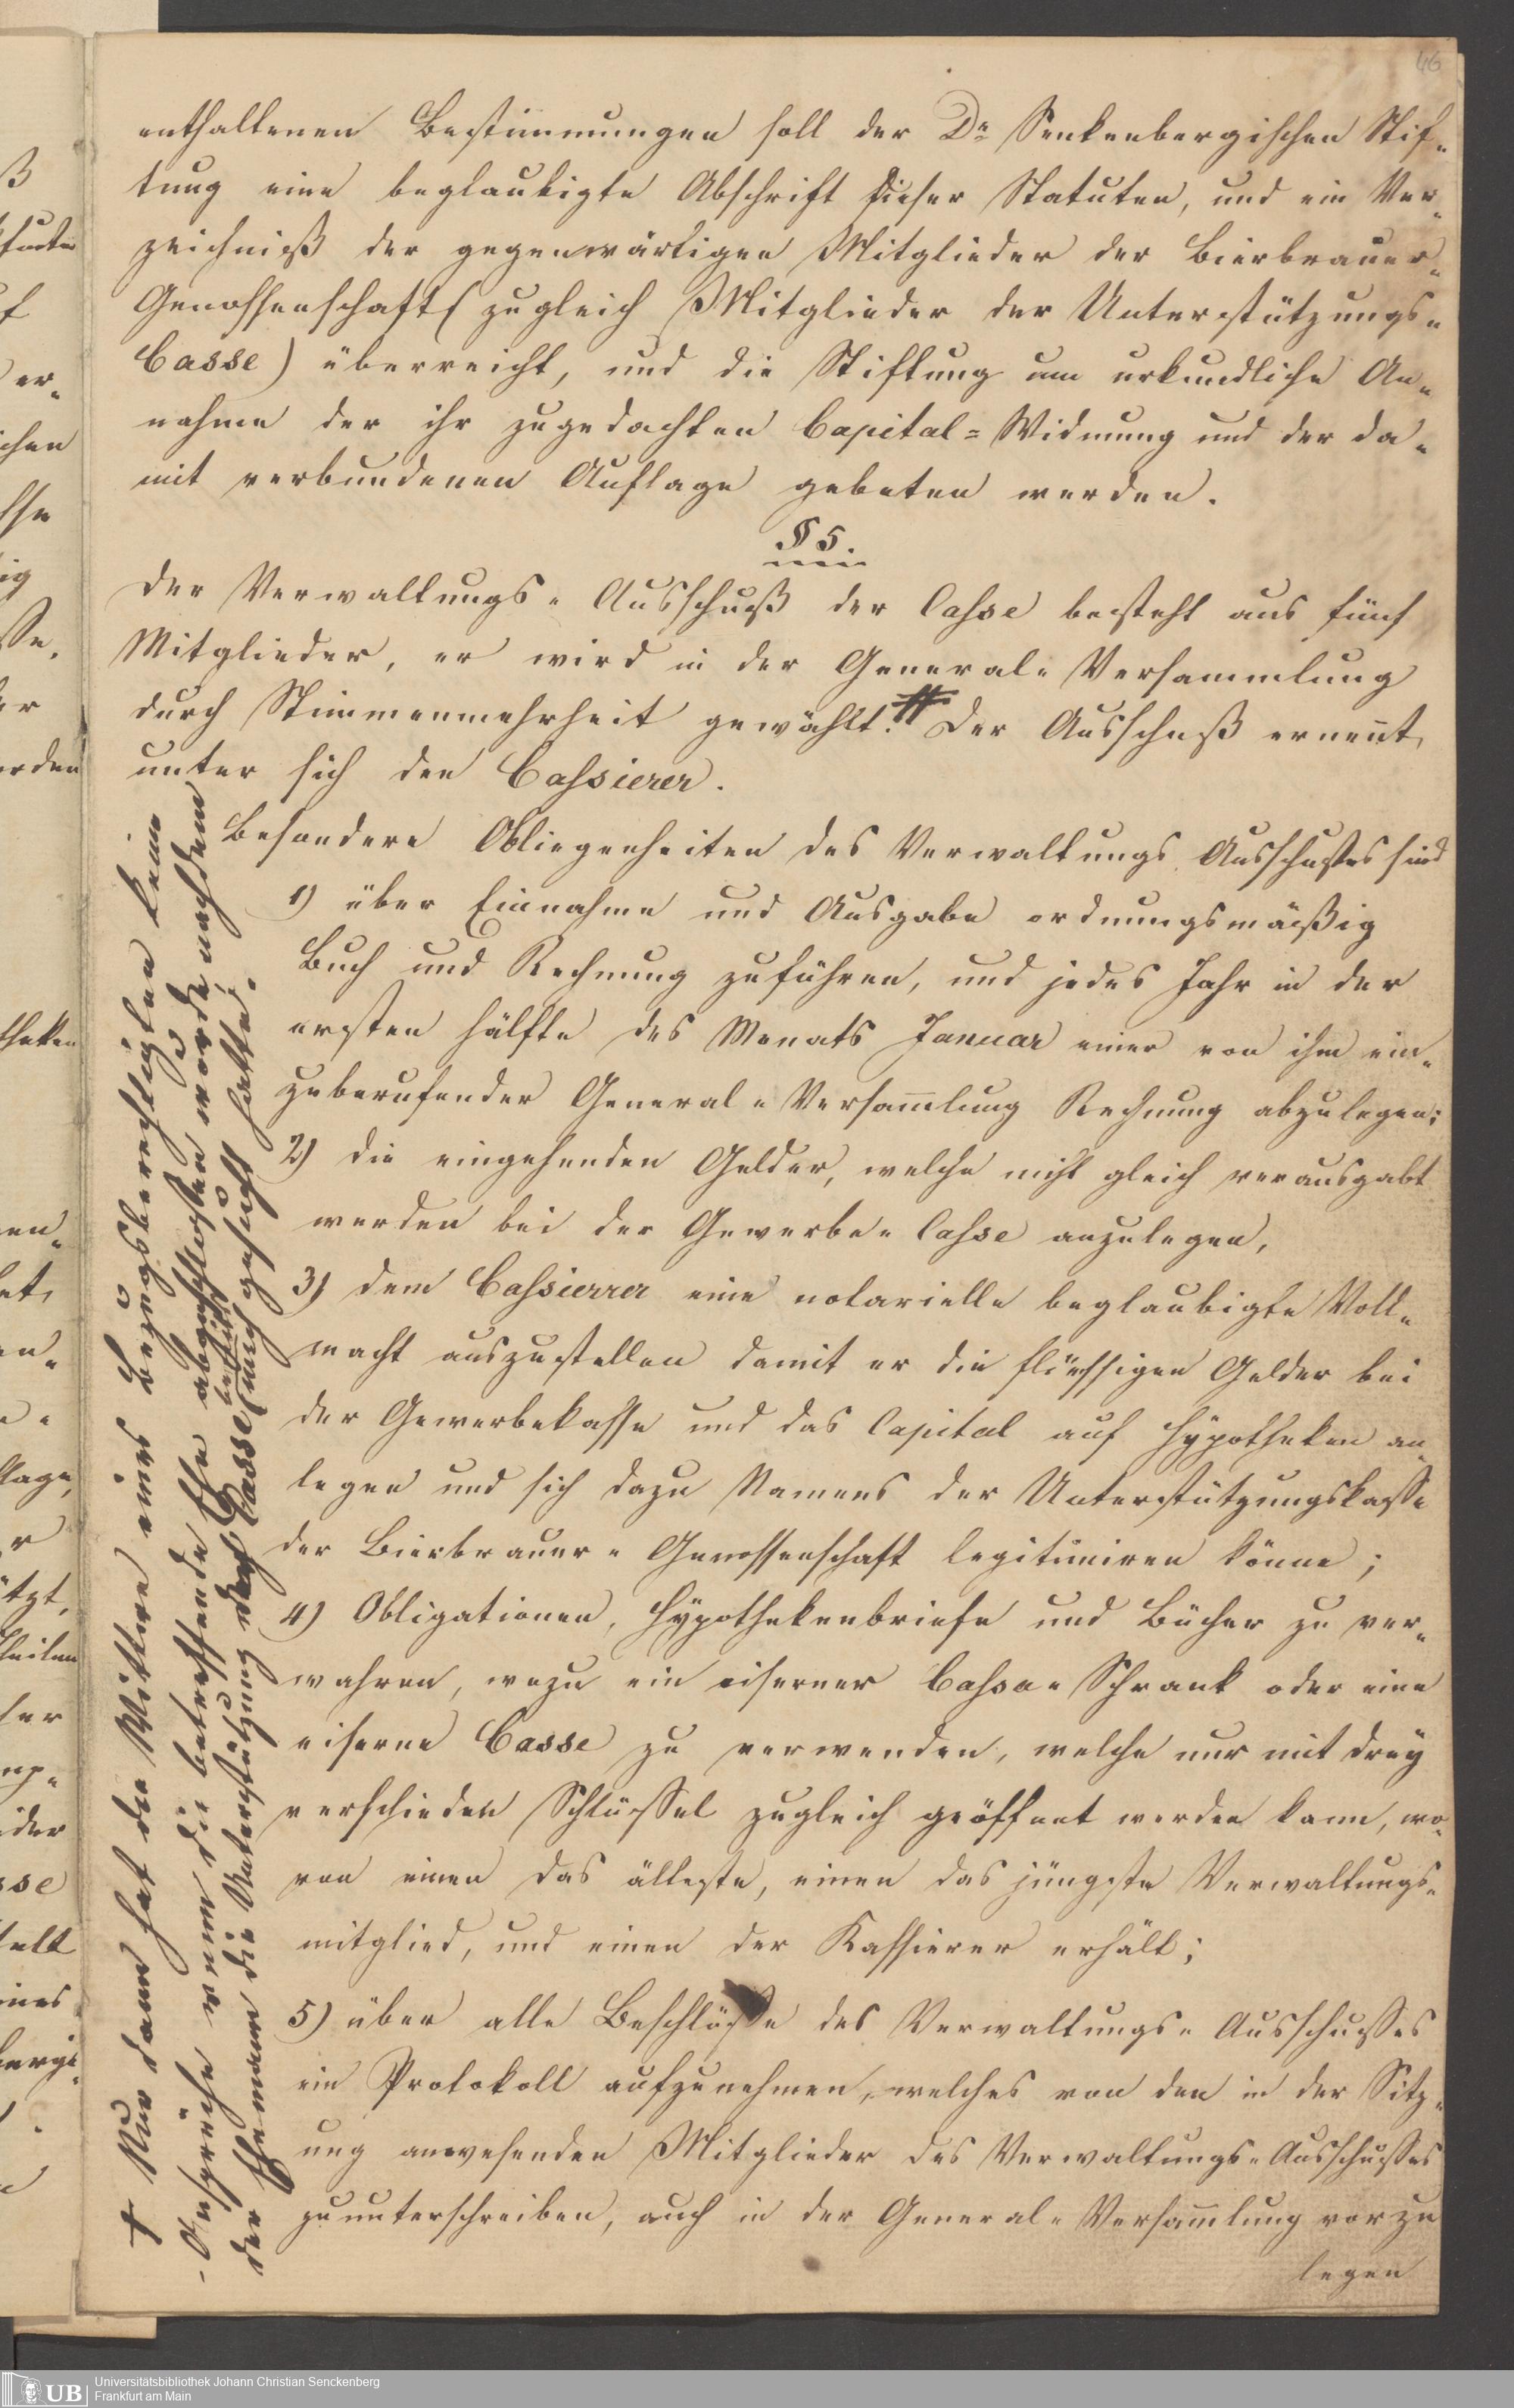 46
enthaltenen Bestimmungen soll der Dr Senkenbergischen Stif-
tung eine beglaubigte Abschrift dieser Statuten, und ein Ver-
zeichniß der gegenwärtigen Mitglieder der Bierbrauer-
Genossenschaft (zugleich Mitglieder der Unterstützungs-
Casse) überreicht, und die Stiftung um urkundliche An-
nahme der ihr zugedachten Capital-Widmung und der da-
mit verbundenen Auflage gebeten werden.
§ 5.
Der Verwaltungs-Ausschuß der Casse besteht aus fünf
Mitglieder, er wird in der General-Versammlung
durch Stimmenmehrheit gewählt. # Der Ausschuß ernennt,
unter sich den Cassierer.
Besondere Obliegenheiten des Verwaltungs Ausschußes sind
1) über Einnahme und Ausgabe ordnungsmäßig
Buch und Rechnung zuführen, und jedes Jahr in der
ersten hälfte des Monats Januar einer von ihm ein-
zuberufender General-Versam̅lung Rechnung abzulegen;
2) die eingehenden Gelder, welche nicht gleich verausgabt
werden bei der Gewerbe-Casse anzulegen,
3) dem Cassierrer eine notarielle beglaubigte Voll-
macht auszustellen damit er die flüssigen Gelder bei
der Gewerbekasse und das Capital auf Hypotheken an-
legen und sich dazu Namens der Unterstützungskasse
der Bierbrauer-Genossenschaft legitimiren könne;
4) Obligationen, Hypothekenbriefe und Bücher zu ver-
wahren, wozu ein eiserner Cassa-Schrank oder eine
eiserne Casse zu verwenden, welche nur mit drey
verschieden Schlüssel zugleich geöffnet werden kann, wo-
von einen das älteste, einen das jüngste Verwaltungs-
mitglied, und einen der Kassierer erhält;
5) über alle Beschlüsse des Verwaltungs-Ausschusses
ein Protokoll aufzunehmen, welches von den in der Sitz-
ung anwesenden Mitglieder des Verwaltungs-Ausschusses
zuunterschreiben, auch in der General-Versam̅lung vorzu
legen
† Nur dann hat die Wittwe eines Bezugsberechtigten keine
Ansprüche wenn die betreffende Ehe abgeschlossen worde, nachdem
der Ehemann die Unterstützung der Casse bereits nachgesucht hatte.
UB Universitätsbibliothek Johann Christian Senckenberg
Frankfurt am Main